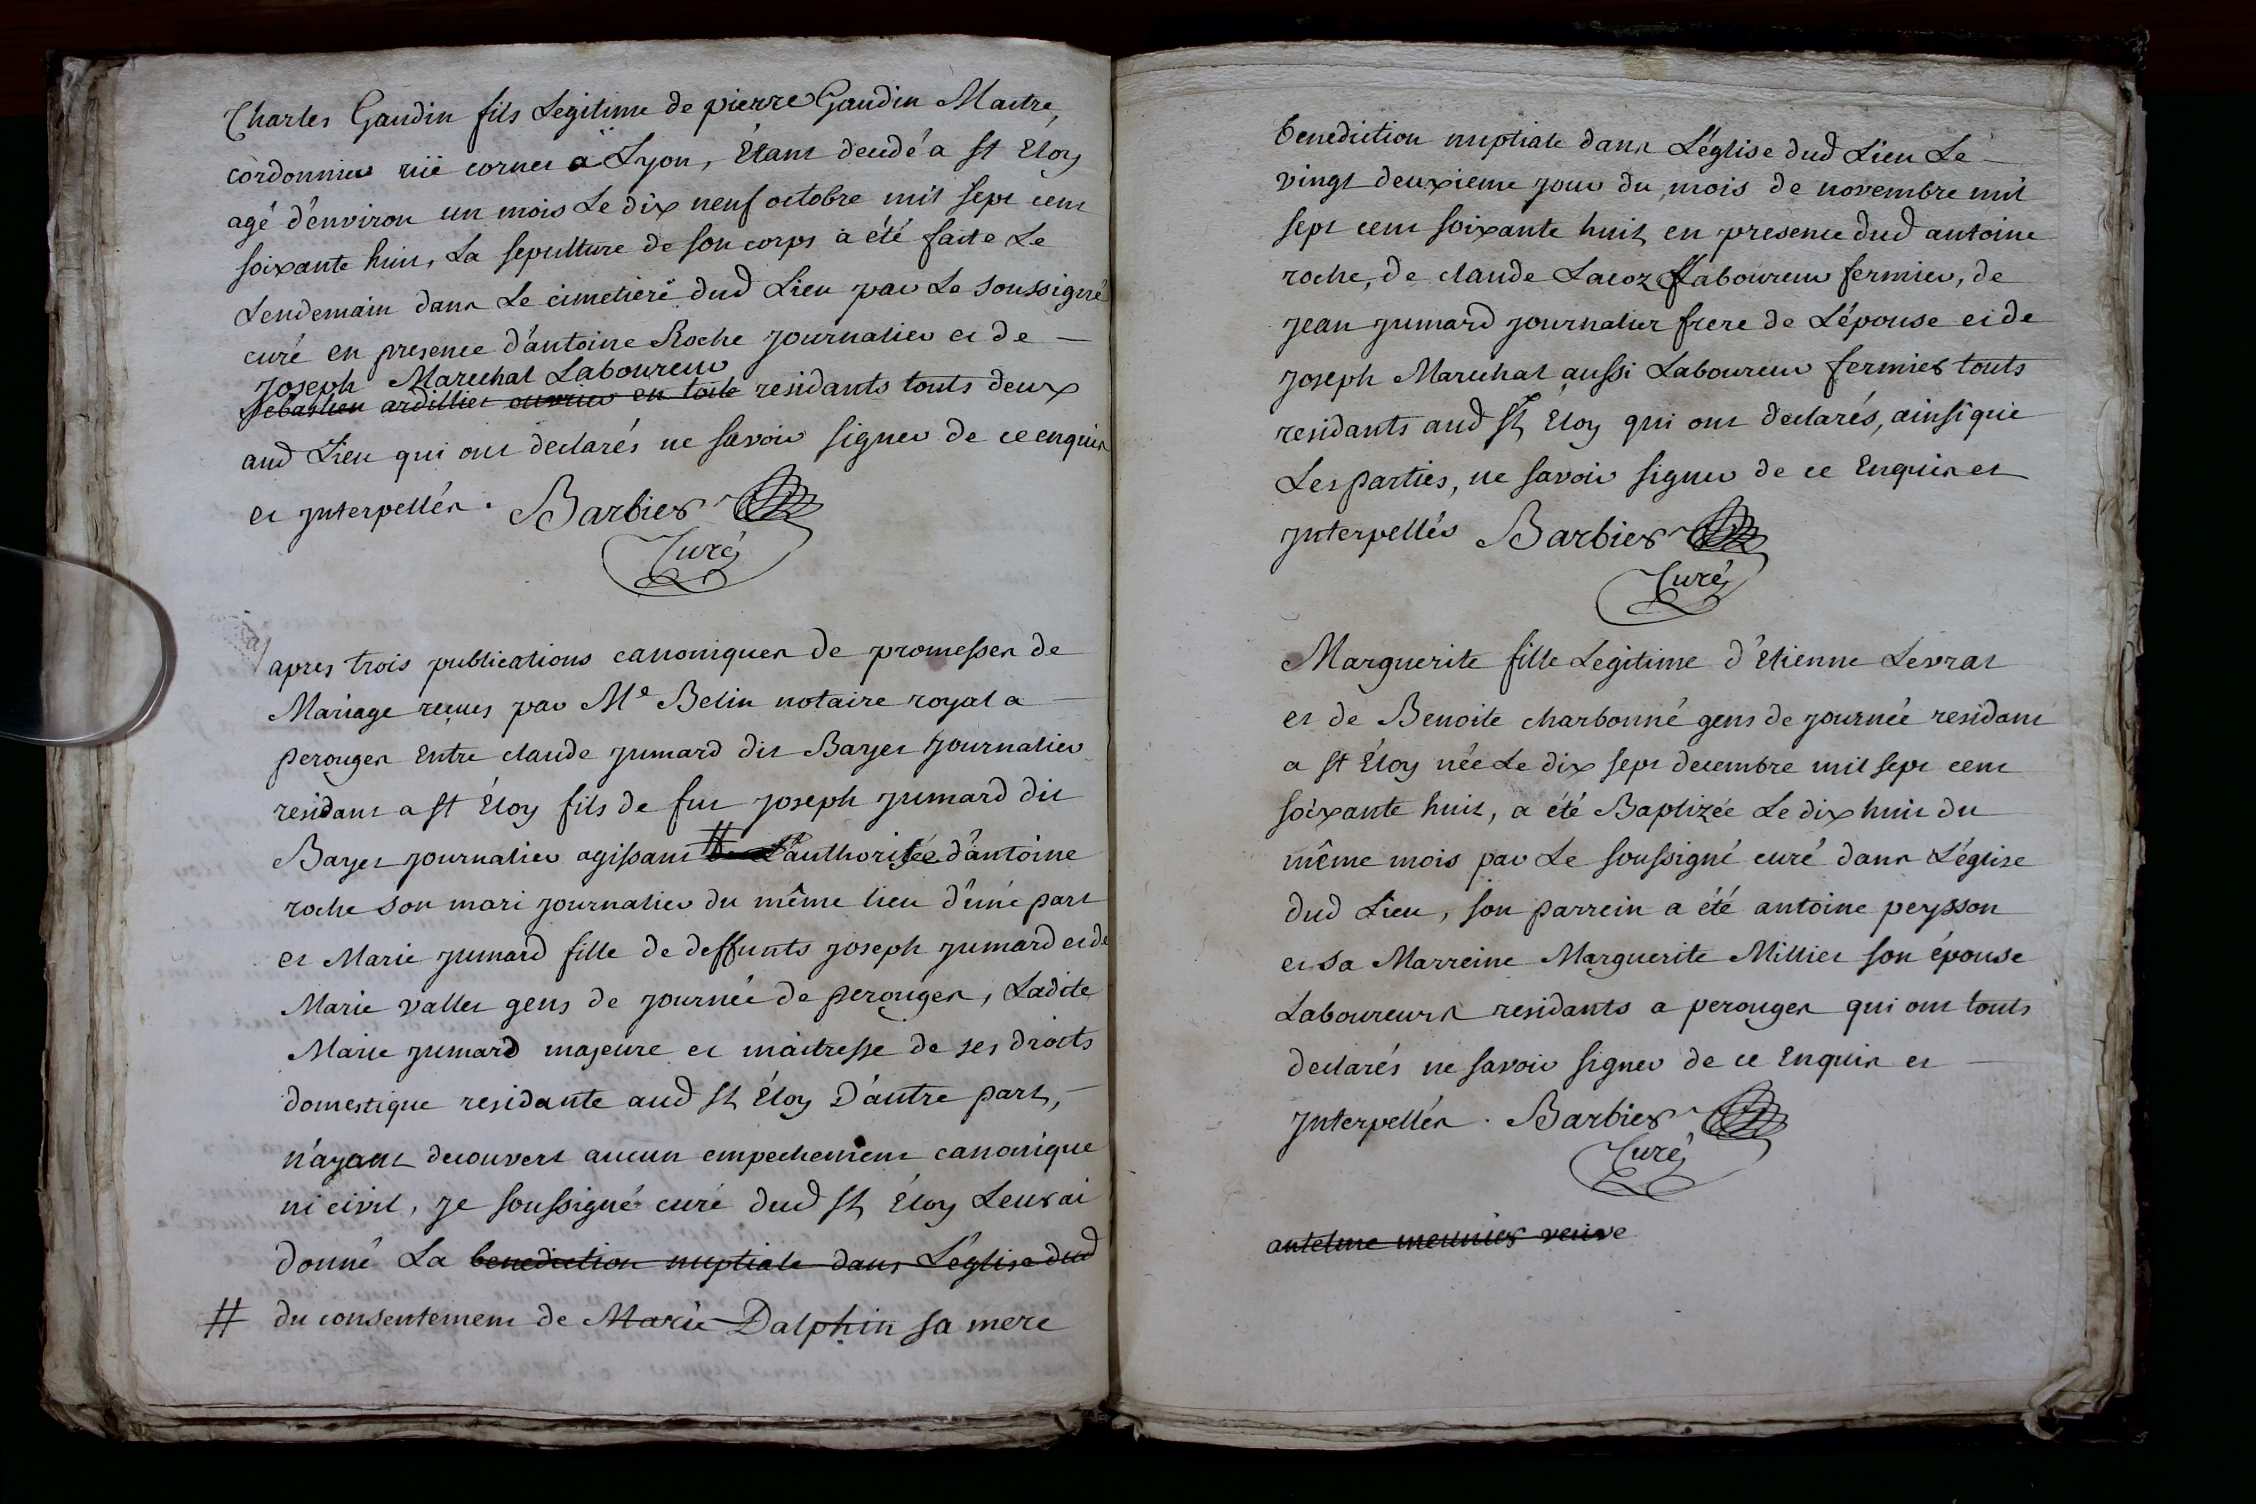 Charles Gaudin fils Legitime de pierre Gaudin Maitre,
cordonnier rüe cornet a Lyon, Étant decedé a St Éloy
agé d'environ un mois Le dix neuf octobre mil sept cent
soixante huit, La sepulture de son corps a été faite Le
Lendemain dans Le cimetiere dud Lieu par Le soussigné
curé en presence d'antoine Roche journalier et de
Joseph Marechal Laboureur
Sebastien ardillier ouvrier en toile residants touts deux
aud Lieu qui ont declarés ne savoir signer de ce enquis
et jnterpellés. Barbier
Curé
apres trois publications canoniques de promesses de
Mariage reçues par Me Belin notaire royal a
perouges Entre claude jumard dit Bayet journalier
residant a St Éloy fils de fut joseph jumard dit
Bayet journalier agissant # L'authorisée d'antoine
roche son mari journalier du même lieu d'une part
et Marie jumard fille de deffunts joseph jumard et de
Marie vallet gens de journée de perouges, Ladite
Marie jumard majeure et maitresse de ses droits
domestique residante aud St Éloy D'autre part,
n'ayant decouvert aucun empechement canonique
ni civil, je soussigné curé dud St Éloy Leur ai
donné La benediction nuptiale dans L'église dud
# du consentement de Marie Dalphin sa mere
benediction nuptiale dans L'église dud Lieu Le
vingt deuxieme jour du mois de novembre mil
sept cent soixante huit en presence dud antoine
roche, de claude Lacoz Laboureur fermier, de
jean jumard journalier frere de L'épouse et de
joseph Marechal aussi Laboureur fermier touts
residants aud St Éloy qui ont declarés, ainsi que
Les parties, ne savoir signer de ce Enquis et
jnterpellés Barbier
Curé
Marguerite fille Legitime d'Etienne Levrat
et de Benoite charbonné gens de journée residant
a St Éloy née Le dix sept decembre mil sept cent
soixante huit, a été Baptizée Le dix huit du
même mois par Le soussigné curé dans L'église
dud Lieu, son parrein a été antoine peysson
et sa Marreine Marguerite Millier son épouse
Laboureurs residants a perouges qui ont touts
declarés ne savoir signer de ce Enquis et
jnterpellés. Barbier
Curé
antelme meunier veuve